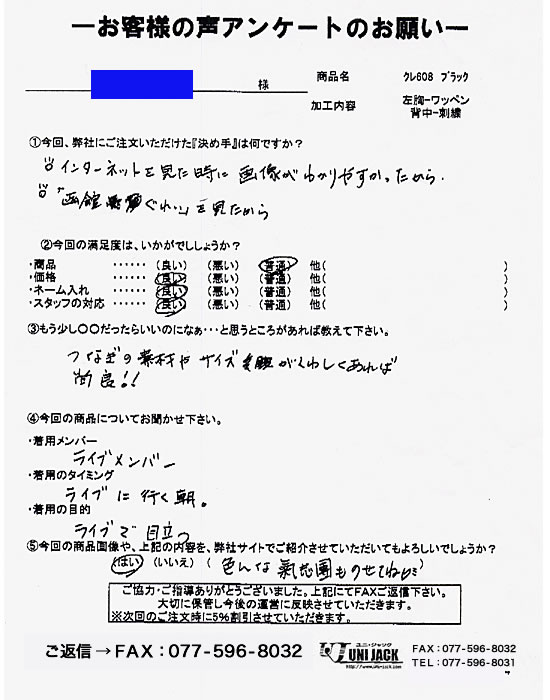 ーお客様の声アンケートのお願いー
様
商品名 クレ608 ブラック
加工内容 左胸ーワッペン
背中ー刺繍
①今回、弊社にご注文いただけた『決め手』は何ですか?
インターネットを見た時に画像がわかりやすかったから.
「函館 ぐれい」を見たから
②今回の満足度は、いかがでししょうか?
・商品 ‥‥‥ (良い) (悪い) (普通) 他( )
・価格 ‥‥‥ (良い) (悪い) (普通) 他( )
・ネーム入れ ‥‥‥ (良い) (悪い) (普通) 他( )
・スタッフの対応 ‥‥‥ (良い) (悪い) (普通) 他( )
③もう少し〇〇だったらいいのになぁ・・・と思うところがあれば教えて下さい。
つなぎの素材やサイズ がくわしくあれば
尚良!!
④今回の商品についてお聞かせ下さい。
・着用メンバー
ライブメンバー
・着用のタイミング
ライブに行く朝。
・着用の目的
ライブで目立つ
⑤今回の商品画像や、上記の内容を、弊社サイトでご紹介させていただいてもよろしいでしょうか?
(はい) (いいえ) (色んな雰囲気ものせてね)
ご協力・ご指導ありがとうございました。上記にてFAXご返信下さい。
大切に保管し今後の運営に反映させていただきます。
※次回のご注文時に5%割引させていただきます。
ご返信→FAX:077-596-8032
ユニ・ジャック
UNI JACK
http://www.uni-jack.com
FAX:077-596-8032
TEL:077-596-8031